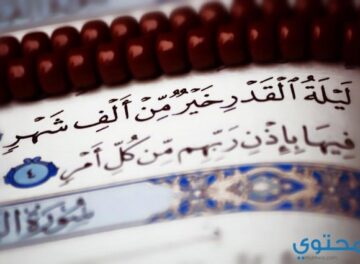 لَيْلَةُ ٱلْقَدْرِ خَيْرٌ مِّنْ أَلْفِ شَهْرٍ
فِيهَا بِإِذْنِ رَبِّهِم مِّن كُلِّ أَمْرٍ ٤
سُورَةُ
محتوى